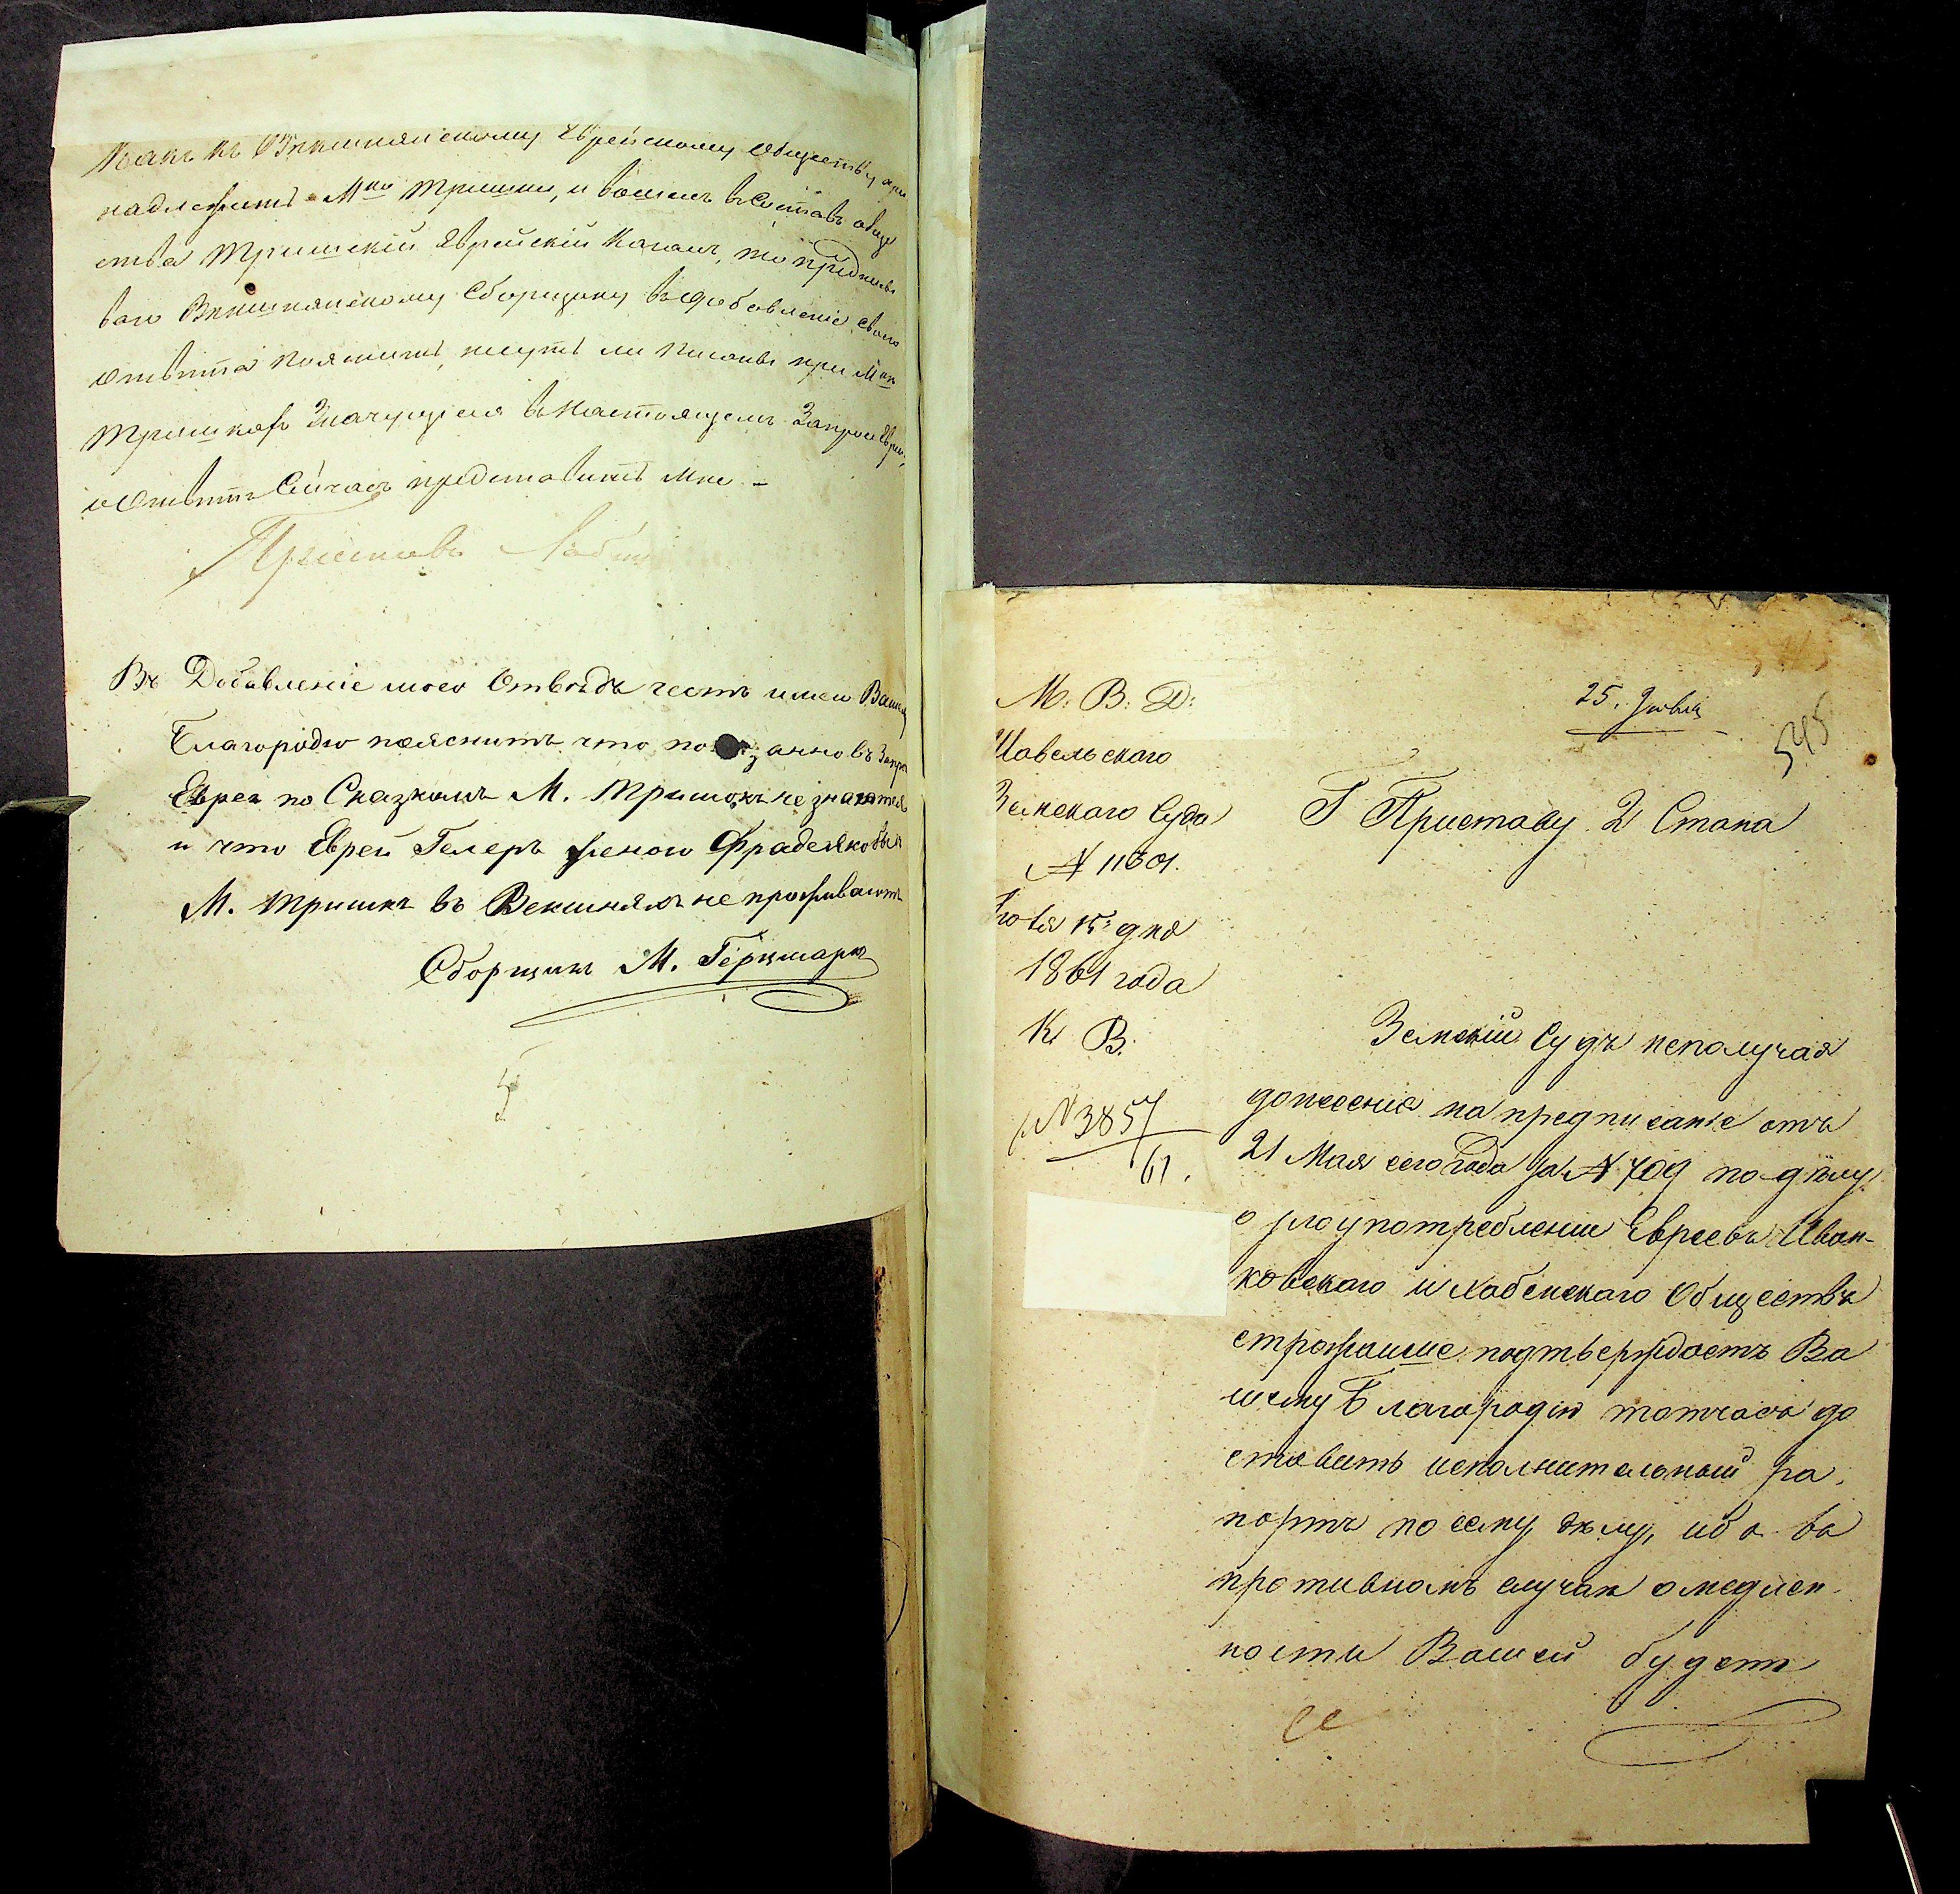 Какъ къ Векшнянскому Еврейскому обществу при
надлежитъ М-ко Тришки, и вошелъ въ составъ обще
ства Тришскій Еврейскій Кагалъ, то предписы
ваю Векшнянскому Сборщику въ добавленіе своего
отвѣта пояснить, несутъ ли писаны при М-кѣ
Тришкахъ Значущіеся въ настоящемъ Запросѣ Евреи,
и отвѣтъ Сейчасъ представить мнѣ. –
Приставъ
Въ Добавленіе моего Отвѣдъ честь имею Вашему
Благородію пояснить что по занно въ Запро
Евреи по Сказкамъ М. Тришокъ не значатся
и что Еврей Гелеръ женою Фрадею
М. Тришкъ въ Векшняхъ не проживаютъ
Сборщикъ М. Геркмаркъ
М. В. Д.
Шавельскаго
Земскаго Суда
№ 11301.
Іюля 15 дня
1861 года
К В.
№ 3857
61.
25. Іюля
545
Г Приставу 2 Стана
Земскій Судъ неполучая
донесенія на предписаніе отъ
21 Мая сего года за № 709 по дѣлу
о злоупотребленіи Евреевъ Иван-
ковскаго и Хабенскаго Обществъ
строжайше подтверждаетъ Ва
шему Благородію тотчасъ до
ставить исполнительный ра
портъ по сему дѣлу, ибо въ
противномъ случаѣ о медлен-
ности Вашей будетъ